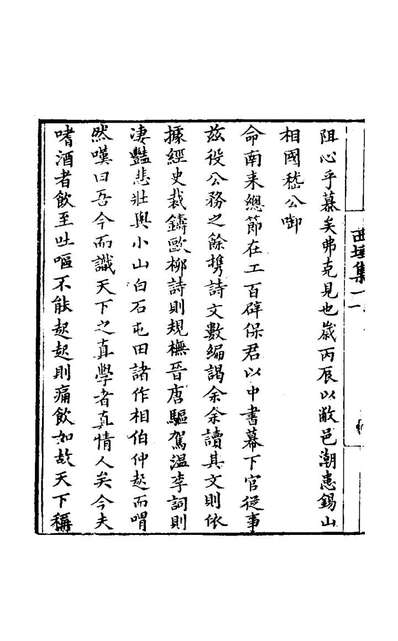 阻心乎慕矣弗克見也歲丙辰以敝邑潮患錫山
相國嵇公啣
命南来總節在工百辟保君以中書幕下官從事
兹役公務之餘携詩文數編謁余余讀其文則依
據經史裁鑄歐柳詩則規橅晉唐驅駕溫李詞則
凄豔悲壯與小山白石屯田諸作相伯仲起而喟
然嘆曰吾今而識天下之真學者真情人矣今夫
嗜酒者飲至吐嘔不能起起則痛飲如故天下稱
集